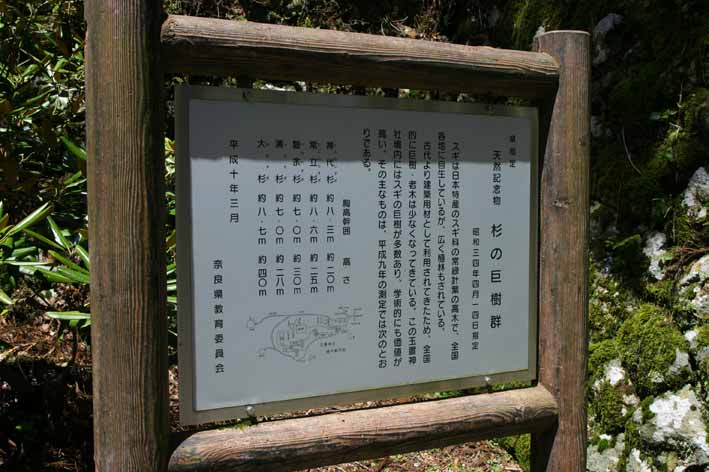 県指定
天然記念物　杉の巨樹群
昭和三四年四月一四日指定
スギは日本特産のスギ科の常緑針葉の高木で、全国
各地に自生しているが、広く植林もされている。
古代より建築用材として利用されてきたため、全国
的に巨樹・老木は少なくなってきている。この玉置神
社境内にはスギの巨樹が多数あり、学術的にも価値が
高い。その主なものは、平成九年の測定では次のとお
りである。
胸高幹囲　高さ
神代杉　約八・三m　約二〇m
常立杉　約八・六m　約二五m
磐余杉　約七・〇m　約三〇m
浦杉　約七・〇m　約二八m
大杉　約八・七m　約四〇m
平成十年三月
奈良県教育委員会